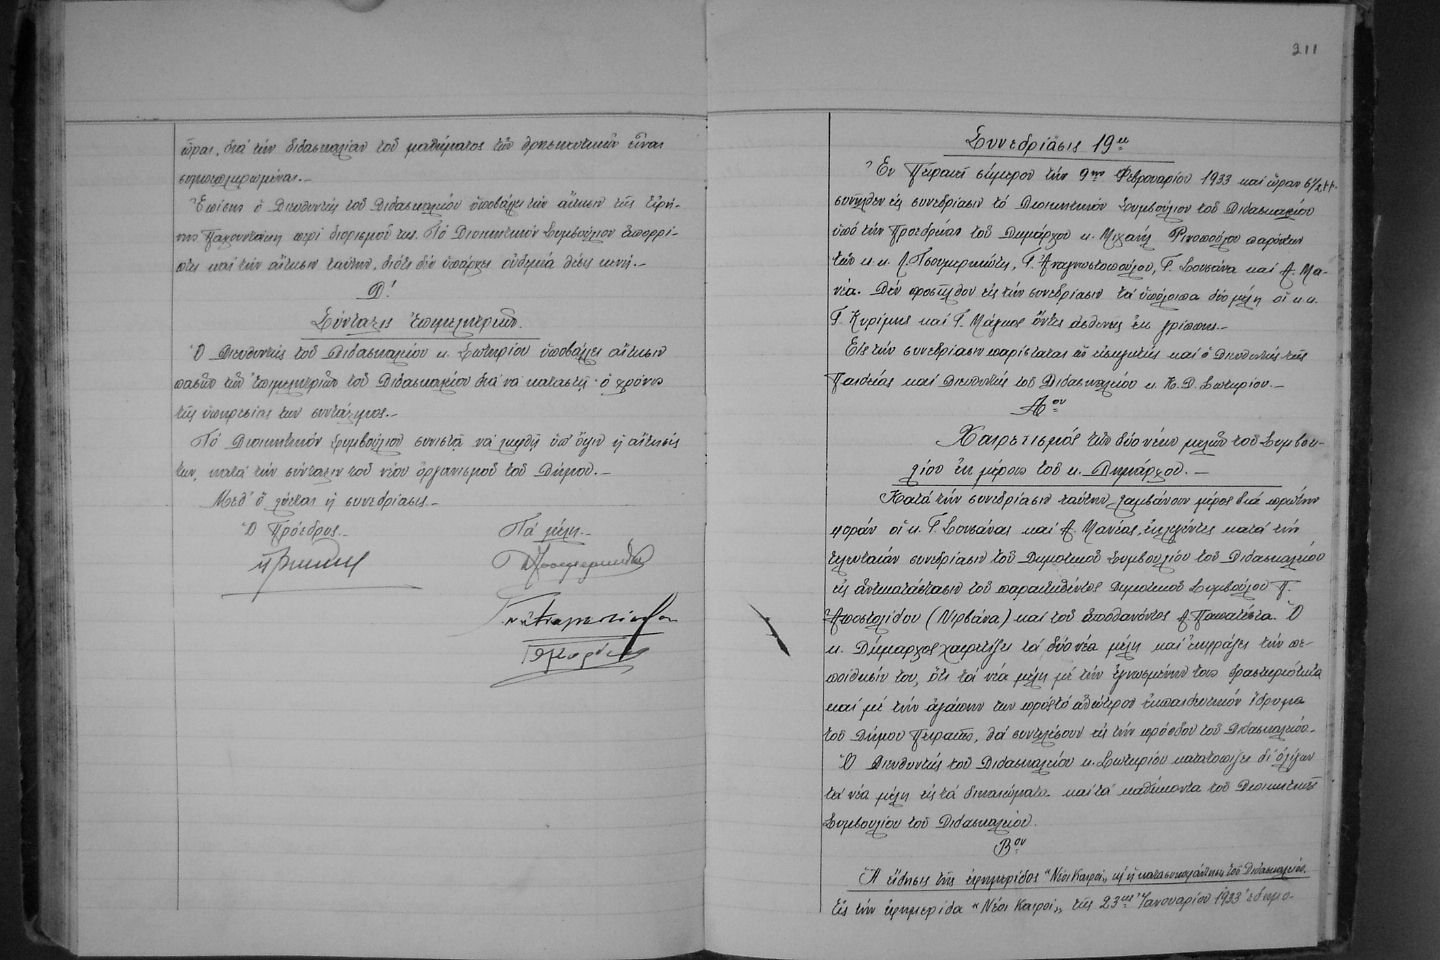 ὧραι, διὰ τὴν διδασκαλίαν τοῦ μαθήματος τῶν θρησκευτικῶν εἶναι
συμπεπληρωμέναι.-
Ἐπίσης ὁ Διευθυντὴς τοῦ Διδασκαλείου ὑποβάλλει τὴν αἴτησιν τῆς Εἰρή-
νης περὶ διορισμοῦ της. Τὸ Διοικητικὸν Συμβούλιον ἀπορρί-
πτει καὶ τὴν αἴτησιν ταύτην, διότι δὲν ὑπάρχει οὐδεμία θέσις κενή.-
Δ!
Σύνταξις ἐπιμελητριῶν.
Ὁ Διευθυντὴς τοῦ Διδασκαλείου κ. Σωτηρίου ὑποβάλλει αἴτησιν
πασῶν τῶν ἐπιμελητριῶν τοῦ Διδασκαλείου διὰ νὰ καταστῇ ὁ χρόνος
τῆς ὑπηρεσίας των συντάξιμος.-
Τὸ Διοικητικὸν Συμβούλιον συνιστᾷ νὰ ληφθῇ ὑπ' ὄψιν ἡ αἴτησίς
των, κατὰ τὴν σύνταξιν τοῦ νέου ὀργανισμοῦ τοῦ Δήμου.-
Μεθ' ὃ λύεται ἡ συνεδρίασις.-
Ὁ Πρόεδρος.- Τὰ μέλη.-
211
Συνεδρίασις 19η
Ἐν Πειραιεῖ σήμερον τὴν 9ην Φεβρουαρίου 1933 καὶ ὥραν
συνῆλθεν εἰς συνεδρίασιν τὸ Διοικητικὸν Συμβούλιον τοῦ Διδασκαλείου
ὑπὸ τὴν Προεδρίαν τοῦ Δημάρχου κ. Μιχαὴλ Ρινοπούλου παρόντων
τῶν κ.κ. Λ. Τσουμερκιώτη, Γ. Ἀναγνωστοπούλου, Γ. Σουσάνα καὶ Α. Μα-
νέα. Δὲν προσῆλθον εἰς τὴν συνεδρίασιν τὰ ὑπόλοιπα δύο μέλη οἱ κ.κ.
Γ. Κυρίμης καὶ Γ. Μάγκος ὄντες ἀσθενεῖς ἐκ γρίππης.-
Εἰς τὴν συνεδρίασιν παρίσταται ὡς εἰσηγητὴς καὶ ὁ Διευθυντὴς τῆς
Παιδείας καὶ Διευθυντὴς τοῦ Διδασκαλείου κ. Κ. Δ. Σωτηρίου.-
Αον
Χαιρετισμὸς τῶν δύο νέων μελῶν τοῦ Συμβου-
λίου ἐκ μέρους τοῦ κ. Δημάρχου.-
Κατὰ τὴν συνεδρίασιν ταύτην λαμβάνουν μέρος διὰ πρώτην
φορὰν οἱ κ. Γ. Σουσάνας καὶ Α. Μανέας, ἐκλεγέντες κατὰ τὴν
τελευταίαν συνεδρίασιν τοῦ Δημοτικοῦ Συμβουλίου τοῦ Διδασκαλείου
εἰς ἀντικατάστασιν τοῦ παραιτηθέντος Δημοτικοῦ Συμβούλου Π.
Ἀποστολίδου (Νιρβάνα) καὶ τοῦ ἀποθανόντος Α. Παπατέστα. Ὁ
κ. Δήμαρχος χαιρετίζει τὰ δύο νέα μέλη καὶ ἐκφράζει τὴν πε-
ποίθησίν του, ὅτι τὰ νέα μέλη μὲ τὴν ἐγνωσμένην τους δραστηριότητα
καὶ μὲ τὴν ἀγάπην των πρὸς τὸ ἀνώτερον ἐκπαιδευτικὸν ἵδρυμα
τοῦ Δήμου Πειραιῶς, θὰ συντελέσουν εἰς τὴν πρόοδον τοῦ Διδασκαλείου.-
Ὁ Διευθυντὴς τοῦ Διδασκαλείου κ. Σωτηρίου κατατοπίζει δι' ὀλίγων
τὰ νέα μέλη εἰς τὰ δικαιώματα καὶ τὰ καθήκοντα τοῦ Διοικητικοῦ
Συμβουλίου τοῦ Διδασκαλείου.
Βον
Ἡ εἴδησις τῆς ἐφημερίδος "Νέοι Καιροί" τοῦ Διδασκαλείου.
Εἰς τὴν ἐφημερίδα "Νέοι Καιροί" τῆς 23ης Ἰανουαρίου 1933 ἐδημο-